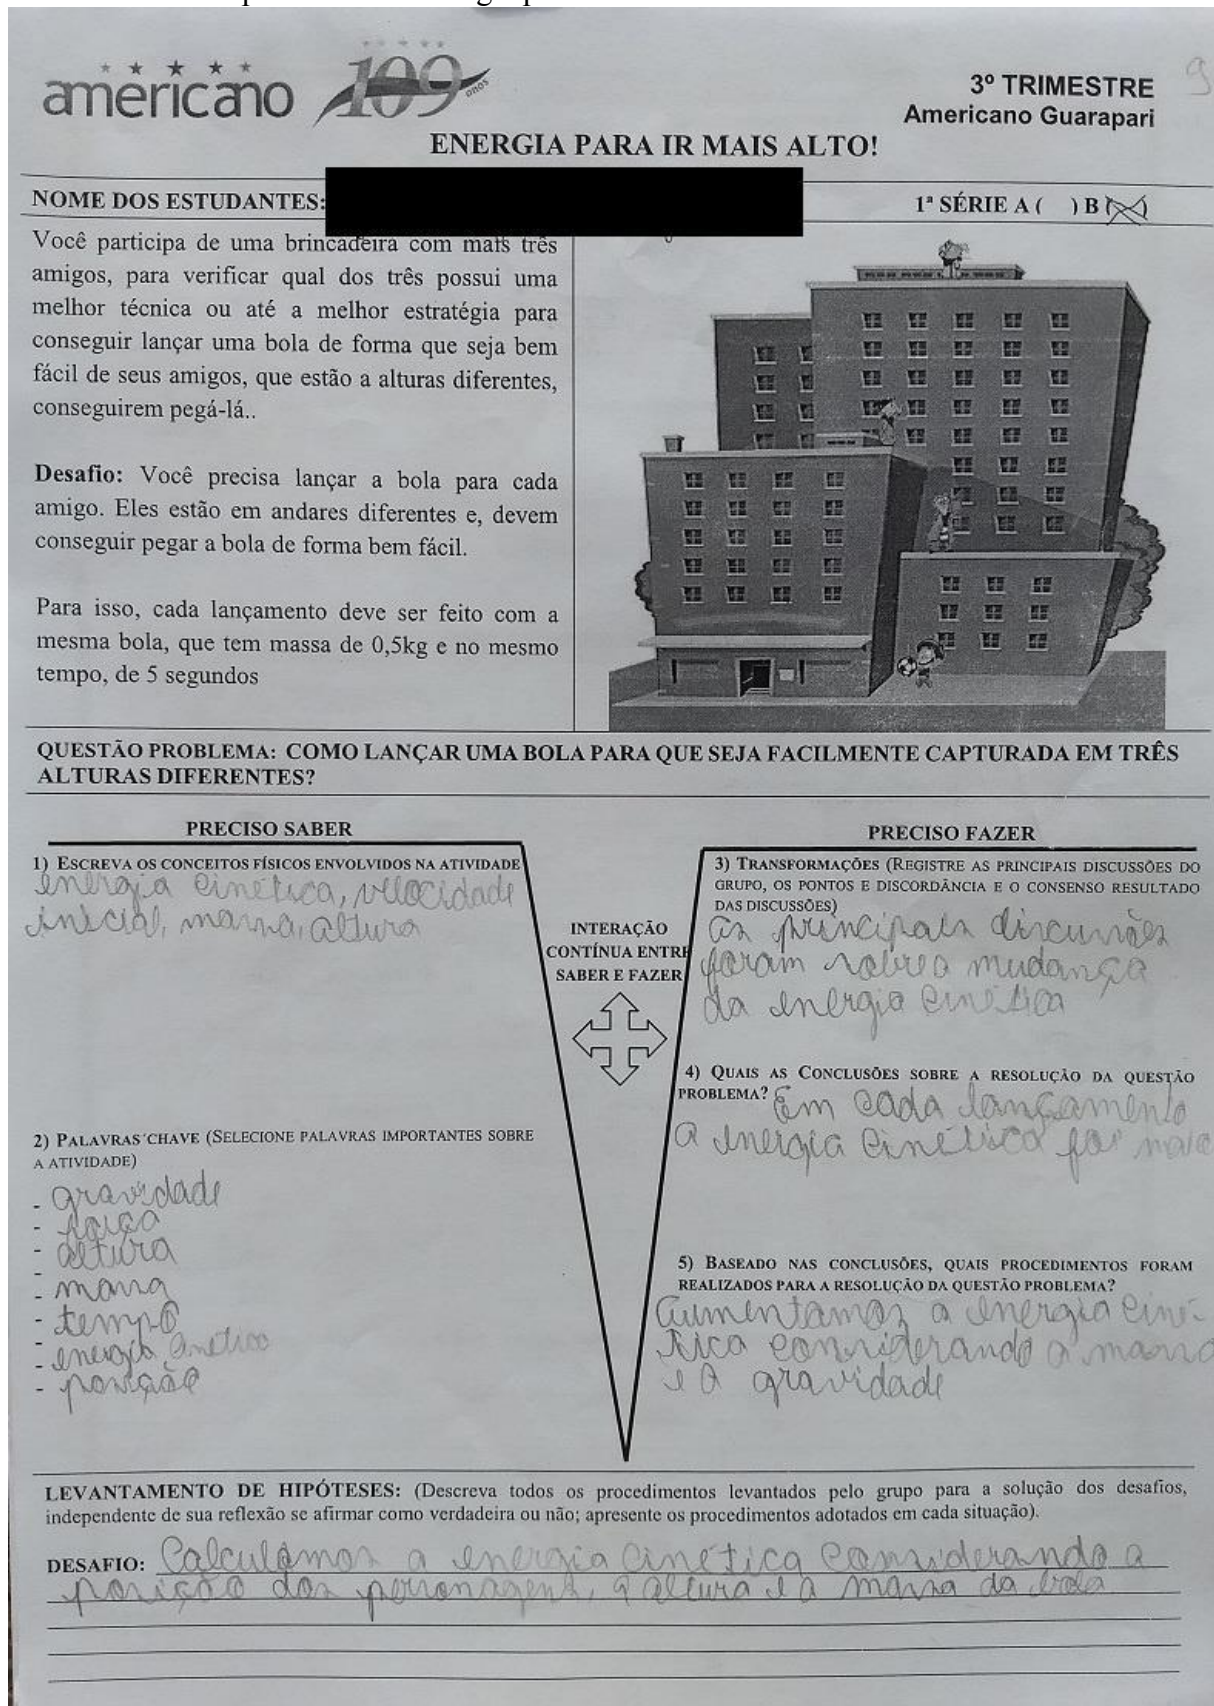 americano 109 anos
3º TRIMESTRE
Americano Guarapari
9
ENERGIA PARA IR MAIS ALTO!
NOME DOS ESTUDANTES:
1ª SÉRIE A ( ) B (X)
Você participa de uma brincadeira com mais três
amigos, para verificar qual dos três possui uma
melhor técnica ou até a melhor estratégia para
conseguir lançar uma bola de forma que seja bem
fácil de seus amigos, que estão a alturas diferentes,
conseguirem pegá-lá..
Desafio: Você precisa lançar a bola para cada
amigo. Eles estão em andares diferentes e, devem
conseguir pegar a bola de forma bem fácil.
Para isso, cada lançamento deve ser feito com a
mesma bola, que tem massa de 0,5kg e no mesmo
tempo, de 5 segundos
QUESTÃO PROBLEMA: COMO LANÇAR UMA BOLA PARA QUE SEJA FACILMENTE CAPTURADA EM TRÊS
ALTURAS DIFERENTES?
PRECISO SABER
1) ESCREVA OS CONCEITOS FÍSICOS ENVOLVIDOS NA ATIVIDADE
energia cinética, velocidade
inicial, massa, altura
2) PALAVRAS CHAVE (SELECIONE PALAVRAS IMPORTANTES SOBRE
A ATIVIDADE)
- gravidade
- força
- altura
- massa
- tempo
- energia cinética
- posição
INTERAÇÃO
CONTÍNUA ENTRE
SABER E FAZER
PRECISO FAZER
3) TRANSFORMAÇÕES (REGISTRE AS PRINCIPAIS DISCUSSÕES DO
GRUPO, OS PONTOS E DISCORDÂNCIA E O CONSENSO RESULTADO
DAS DISCUSSÕES)
As principais discussões
foram sobre a mudança
da energia cinética
4) QUAIS AS CONCLUSÕES SOBRE A RESOLUÇÃO DA QUESTÃO
PROBLEMA? Em cada lançamento
a energia cinética foi
5) BASEADO NAS CONCLUSÕES, QUAIS PROCEDIMENTOS FORAM
REALIZADOS PARA A RESOLUÇÃO DA QUESTÃO PROBLEMA?
Aumentamos a energia ciné-
tica considerando a massa
e a gravidade
LEVANTAMENTO DE HIPÓTESES: (Descreva todos os procedimentos levantados pelo grupo para a solução dos desafios,
independente de sua reflexão se afirmar como verdadeira ou não; apresente os procedimentos adotados em cada situação).
DESAFIO: Calculamos a energia cinética considerando a
posição dos personagens, a altura e a massa da bola